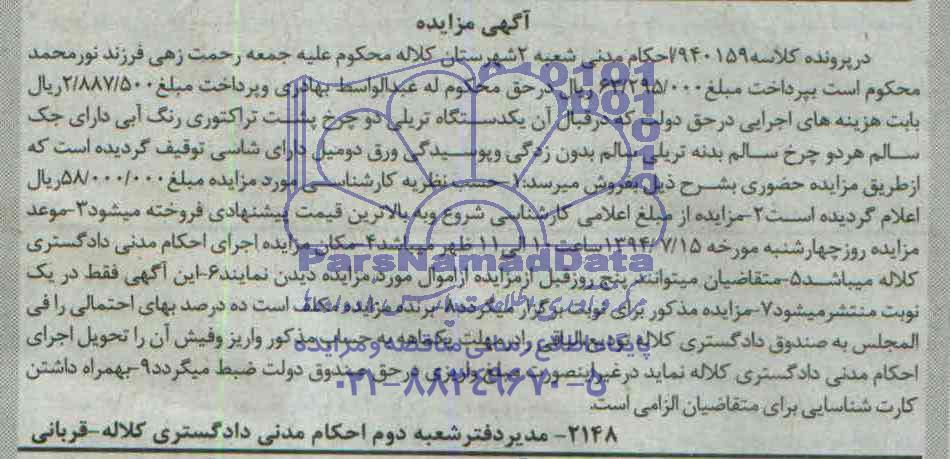 آگهی مزایده
درپرونده کلاسه۹۴۰۱۵۹/احکام مدنی شعبه ۲شهرستان کلاله محکوم علیه جمعه رحمت زهی فرزند نورمحمد
محکوم است بپرداخت مبلغ۶۳/۲۹۵/۰۰۰ ریال درحق محکوم له عبدالواسط بهادری وپرداخت مبلغ۲/۸۸۷/۵۰۰ریال
بابت هزینه های اجرایی درحق دولت که درقبال آن یکدستگاه تریلی دو چرخ پشت تراکتوری رنگ آبی دارای جک
سالم هردو چرخ سالم بدنه تریلی سالم بدون زدگی وپوسیدگی ورق دومیل دارای شاسی توقیف گردیده است که
ازطریق مزایده حضوری بشرح ذیل بفروش میرسد:۱-حسب نظریه کارشناسی مورد مزایده مبلغ۵۸/۰۰۰/۰۰۰ریال
اعلام گردیده است۲-مزایده از مبلغ اعلامی کارشناسی شروع وبه بالاترین قیمت پیشنهادی فروخته میشود۳-موعد
مزایده روزچهارشنبه مورخه ۱۳۹۴/۷/۱۵ساعت ۱۰الی۱۱ ظهر میباشد۴-مکان مزایده اجرای احکام مدنی دادگستری
کلاله میباشد۵-متقاضیان میتوانند پنج روزقبل ازمزایده ازاموال مورد مزایده دیدن نمایند۶-این آگهی فقط در یک
نوبت منتشرمیشود۷-مزایده مذکور برای نوبت برگزار میگردد۸-برنده مزایده مکلف است ده درصد بهای احتمالی را فی
المجلس به صندوق دادگستری کلاله تودیع والباقی را درمهلت یکماهه به حساب مذکور واریز وفیش آن را تحویل اجرای
احکام مدنی دادگستری کلاله نماید درغیراینصورت مبلغ واریزی درحق صندوق دولت ضبط میگردد۹-بهمراه داشتن
کارت شناسایی برای متقاضیان الزامی است.
۲۱۴۸- مدیردفترشعبه دوم احکام مدنی دادگستری کلاله-قربانی
ParsNamadData
پایگاه اطلاع رسانی مناقصه ومزایده
۰۲۱-۸۸۳۴۹۶۷۰-۵